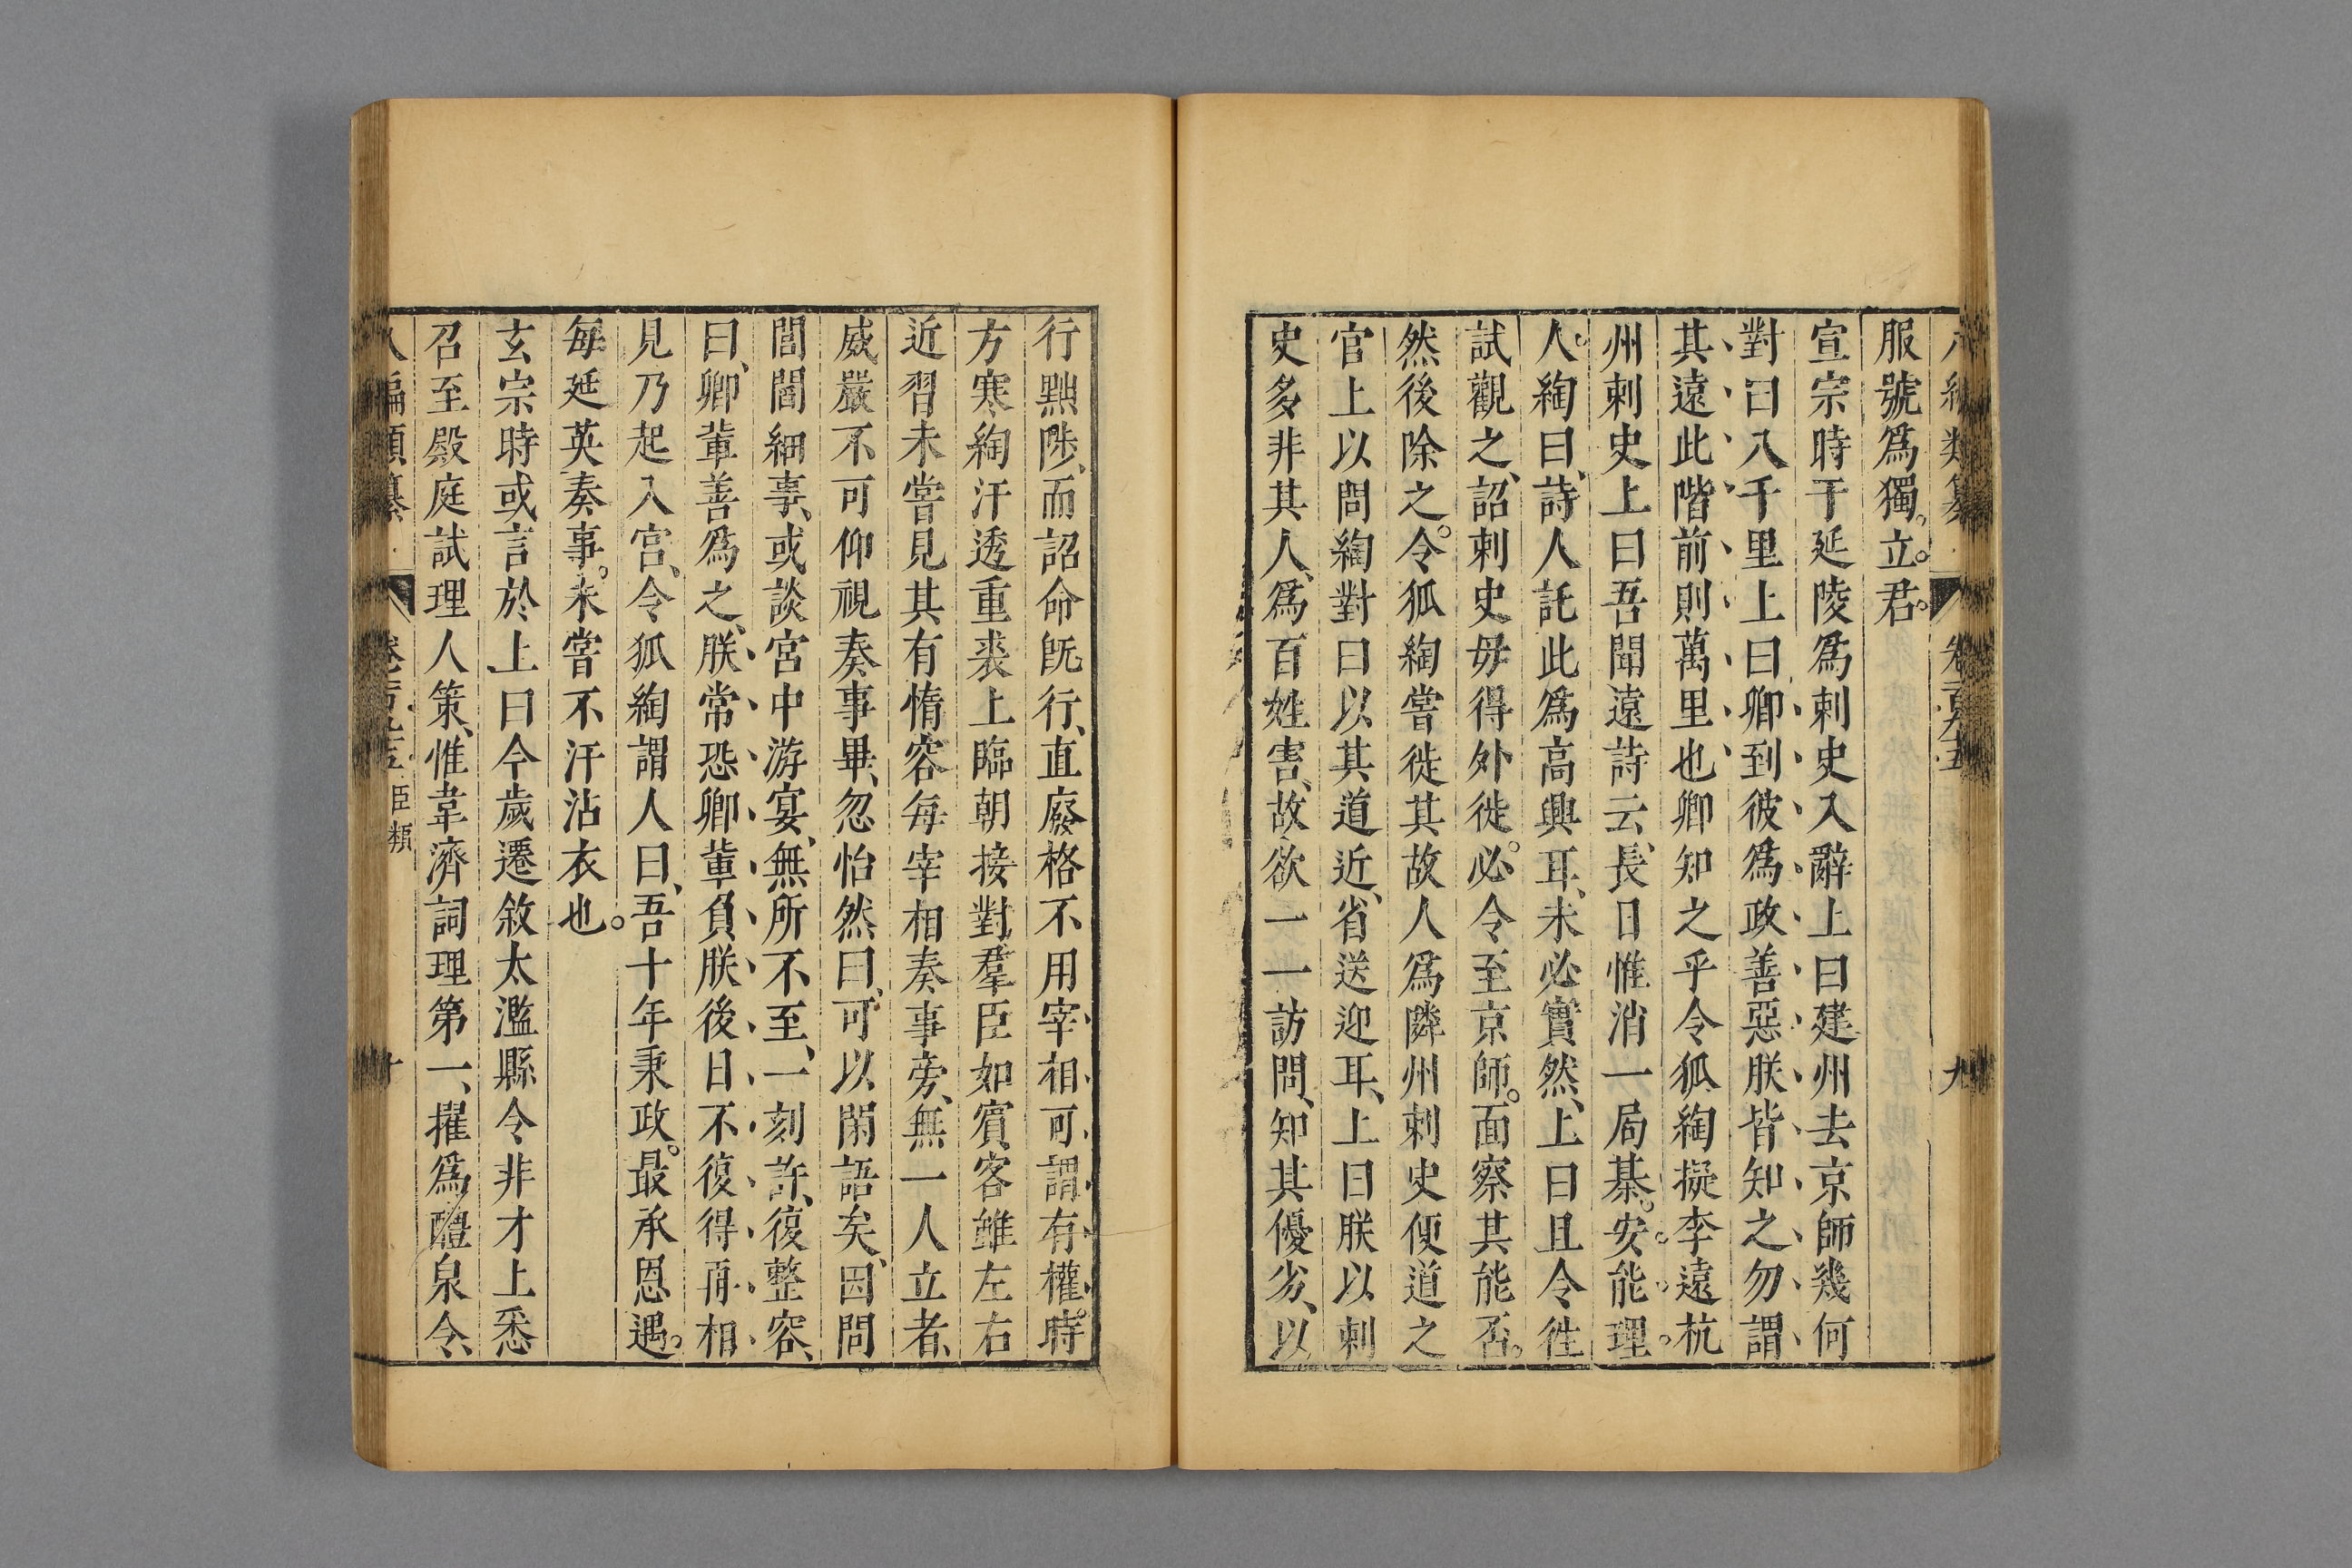 服號爲獨立君
宣宗時于延陵爲刺史入辭上曰建州去京師幾何
對曰八千里上曰卿到彼爲政善惡朕皆知之勿謂
其遠此階前則萬里也卿知之乎令狐綯擬李遠杭
州刺史上曰吾聞遠詩云長日惟消一局棊安能理
人綯曰詩人託此爲高興耳未必實然上曰且令徃
試觀之詔刺史毋得外徙必令至京師面察其能否
然後除之令狐綯嘗徙其故人爲隣州刺史便道之
官上以問綯對曰以其道近省送迎耳上曰朕以刺
史多非其人爲百姓害故欲一一訪問知其優劣以
九
行黜陟而詔命旣行直廢格不用宰相可謂有權時
方寒綯汗透重裘上臨朝接對羣臣如賓客雖左右
近習未嘗見其有惰容每宰相奏事旁無一人立者
威嚴不可仰視奏事畢忽怡然曰可以閒語矣因問
閭閻細事或談宮中游宴無所不至一刻許復整容
曰卿軰善爲之朕常恐卿軰負朕後日不復得再相
見乃起入宮令狐綯謂人曰吾十年秉政最承恩遇
每延英奏事未嘗不汗沾衣也
玄宗時或言於上曰今歲遷敘太濫縣令非才上悉
召至殿庭試理人策惟韋濟詞理第一擢爲醴泉令
八編類纂 臣類 十